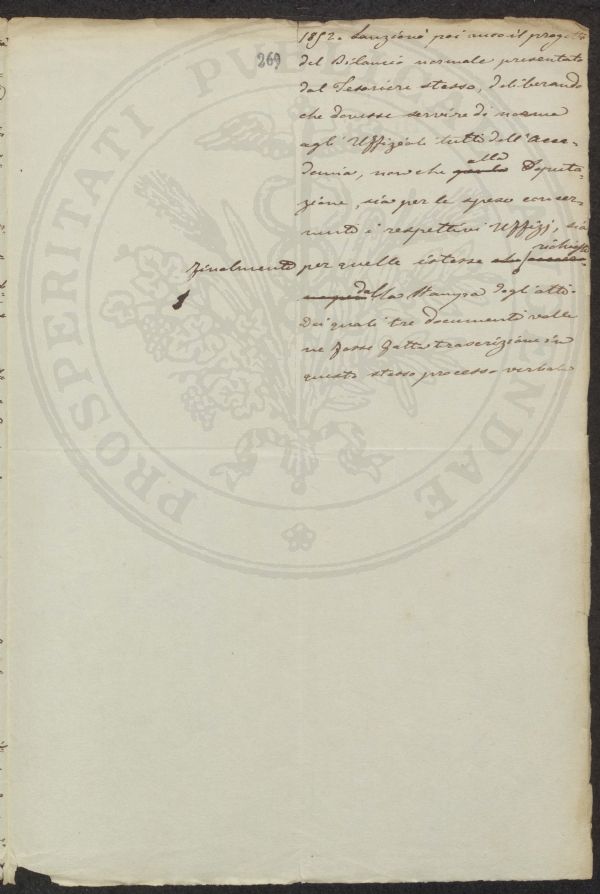 269
1852. Sanzionò poi anco il progetto
del Bilancio normale presentato
dal Tesoriere stesso, deliberando
che dovesse servire di norma
agli Uffiziali tutti dell'Acca-
demia, nonche alla Deputa-
zione, sia per le spese concer-
nenti i respettivi Uffizj, sia
finalmente per quelle istesse richieste
dalla Stampa degli atti.
Dei quali tre documenti volle
ne fosse fatta trascrizione in
questo stesso processo verbale
PROSPERITATI PUBLICAE AUGENDAE